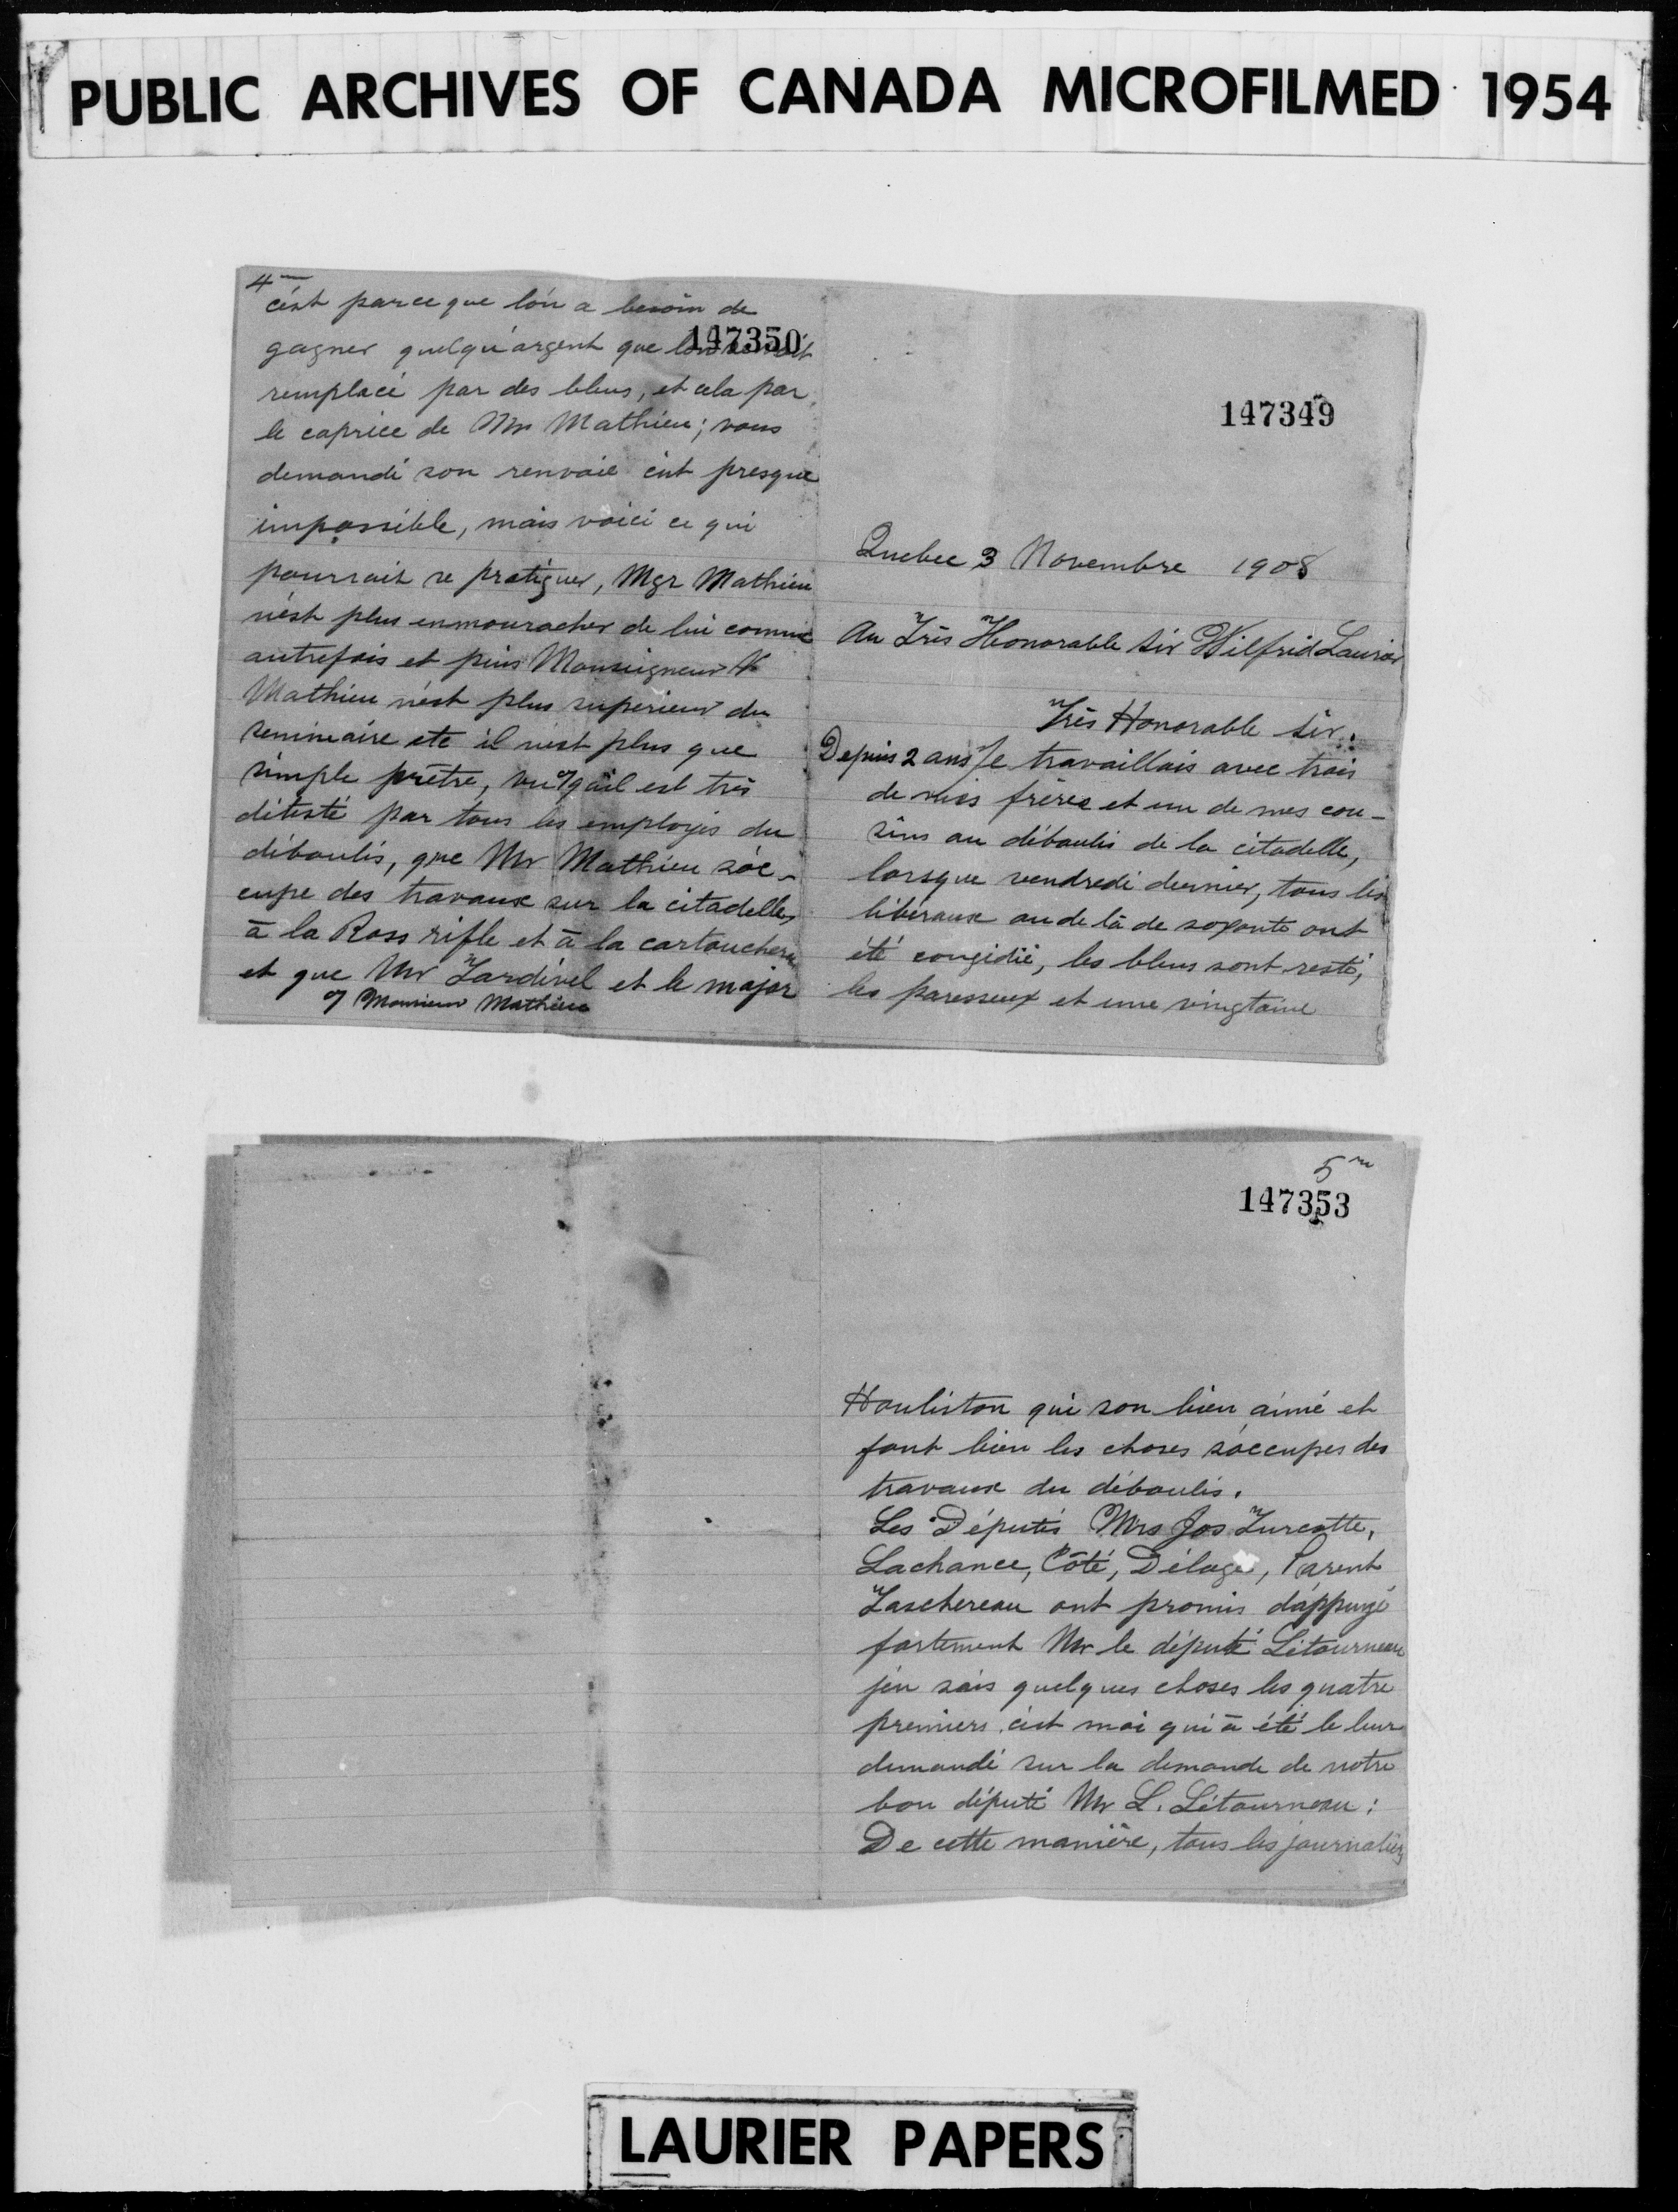 PUBLIC ARCHIVES OF CANADA MICROFILMED 1954
4
c'est parce que l'on a besoin de
147350
gagner quelqu'argent que
remplacé par des bleus, et cela par
le caprice de Mr Mathieu; vous
demandé son renvoie c' est presque
impossible, mais voici ce qui
pourrait se pratiquer, Mgr Mathieu
n'est plus enmouracher de lui comme
autrefois et puis Monseigneur
Mathieu n'est plus supérieur du
seminaire etc il n'est plus que
simple prêtre, vu qu'il est très
détesté par tous les employés du
déboulis, que Mr Mathieu s'oc-
cupe des travaux sur la citadelle,
à la Ross rifle et à la cartoucherie
et que Mr Tardivel et le major
Monsieur Mathieu
147349
Quebec 3 Novembre 1908
Au Très Honorable Sir Wilfrid Laurier
Très Honorable Sir.
Depuis 2 ans Je travaillais avec trois
de mes frères et un de mes cou-
sins au déboulis de la citadelle,
lorsque vendredi dernier, tous les
libéraux au de là de soxante ont
été congidié, les bleus sont resté,
les paresseux et une vingtaine
5
147353
Houliston qui son bien aimé et
font bien les choses s'occuper des
travaux du déboulis.
Les Députés Mrs Jos Turcotte,
Lachance, Côté, Délage, Parent,
Taschereau ont promis d'appuyé
fortement Mr le député Létourneau
j'en sais quelques choses les quatre
premiers c'est moi qui à été le leur
demandé sur la demande de notre
bon député Mr L. Létourneau:
De cette manière, tous les journaliers
LAURIER PAPERS